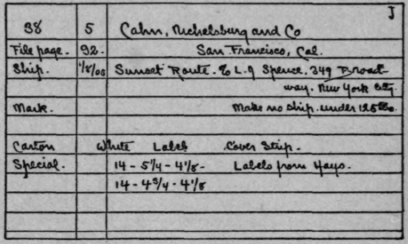 J
98 5 Cahn, Nickelsburg and Co
File page. 92. San Francisco, Cal.
Ship. 1/8/03 Sunset Route. % L. J Spence. 349 Broad-
way. New York City.
Mark. Make no ship. under 125 lbs.
Carton White Label Cover Strip.
Special. 14 - 5 1/4 - 4 1/8 - Labels from Hays.
14 - 4 3/4 - 4 1/8